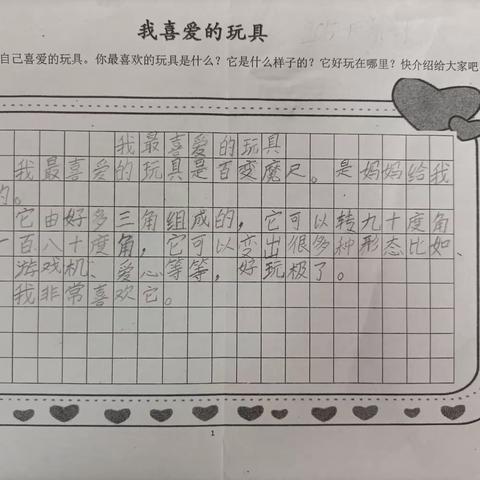 我喜爱的玩具
自己喜爱的玩具。你最喜欢的玩具是什么？它是什么样子的？它好玩在哪里？快介绍给大家吧
我最喜爱的玩具
我最喜爱的玩具是百变魔尺。是妈妈给我
的。
它由好多三角组成的，它可以转九十度角
一百八十度角，它可以变出很多种形态比如、
游戏机、爱心等等，好玩极了。
我非常喜欢它。
1